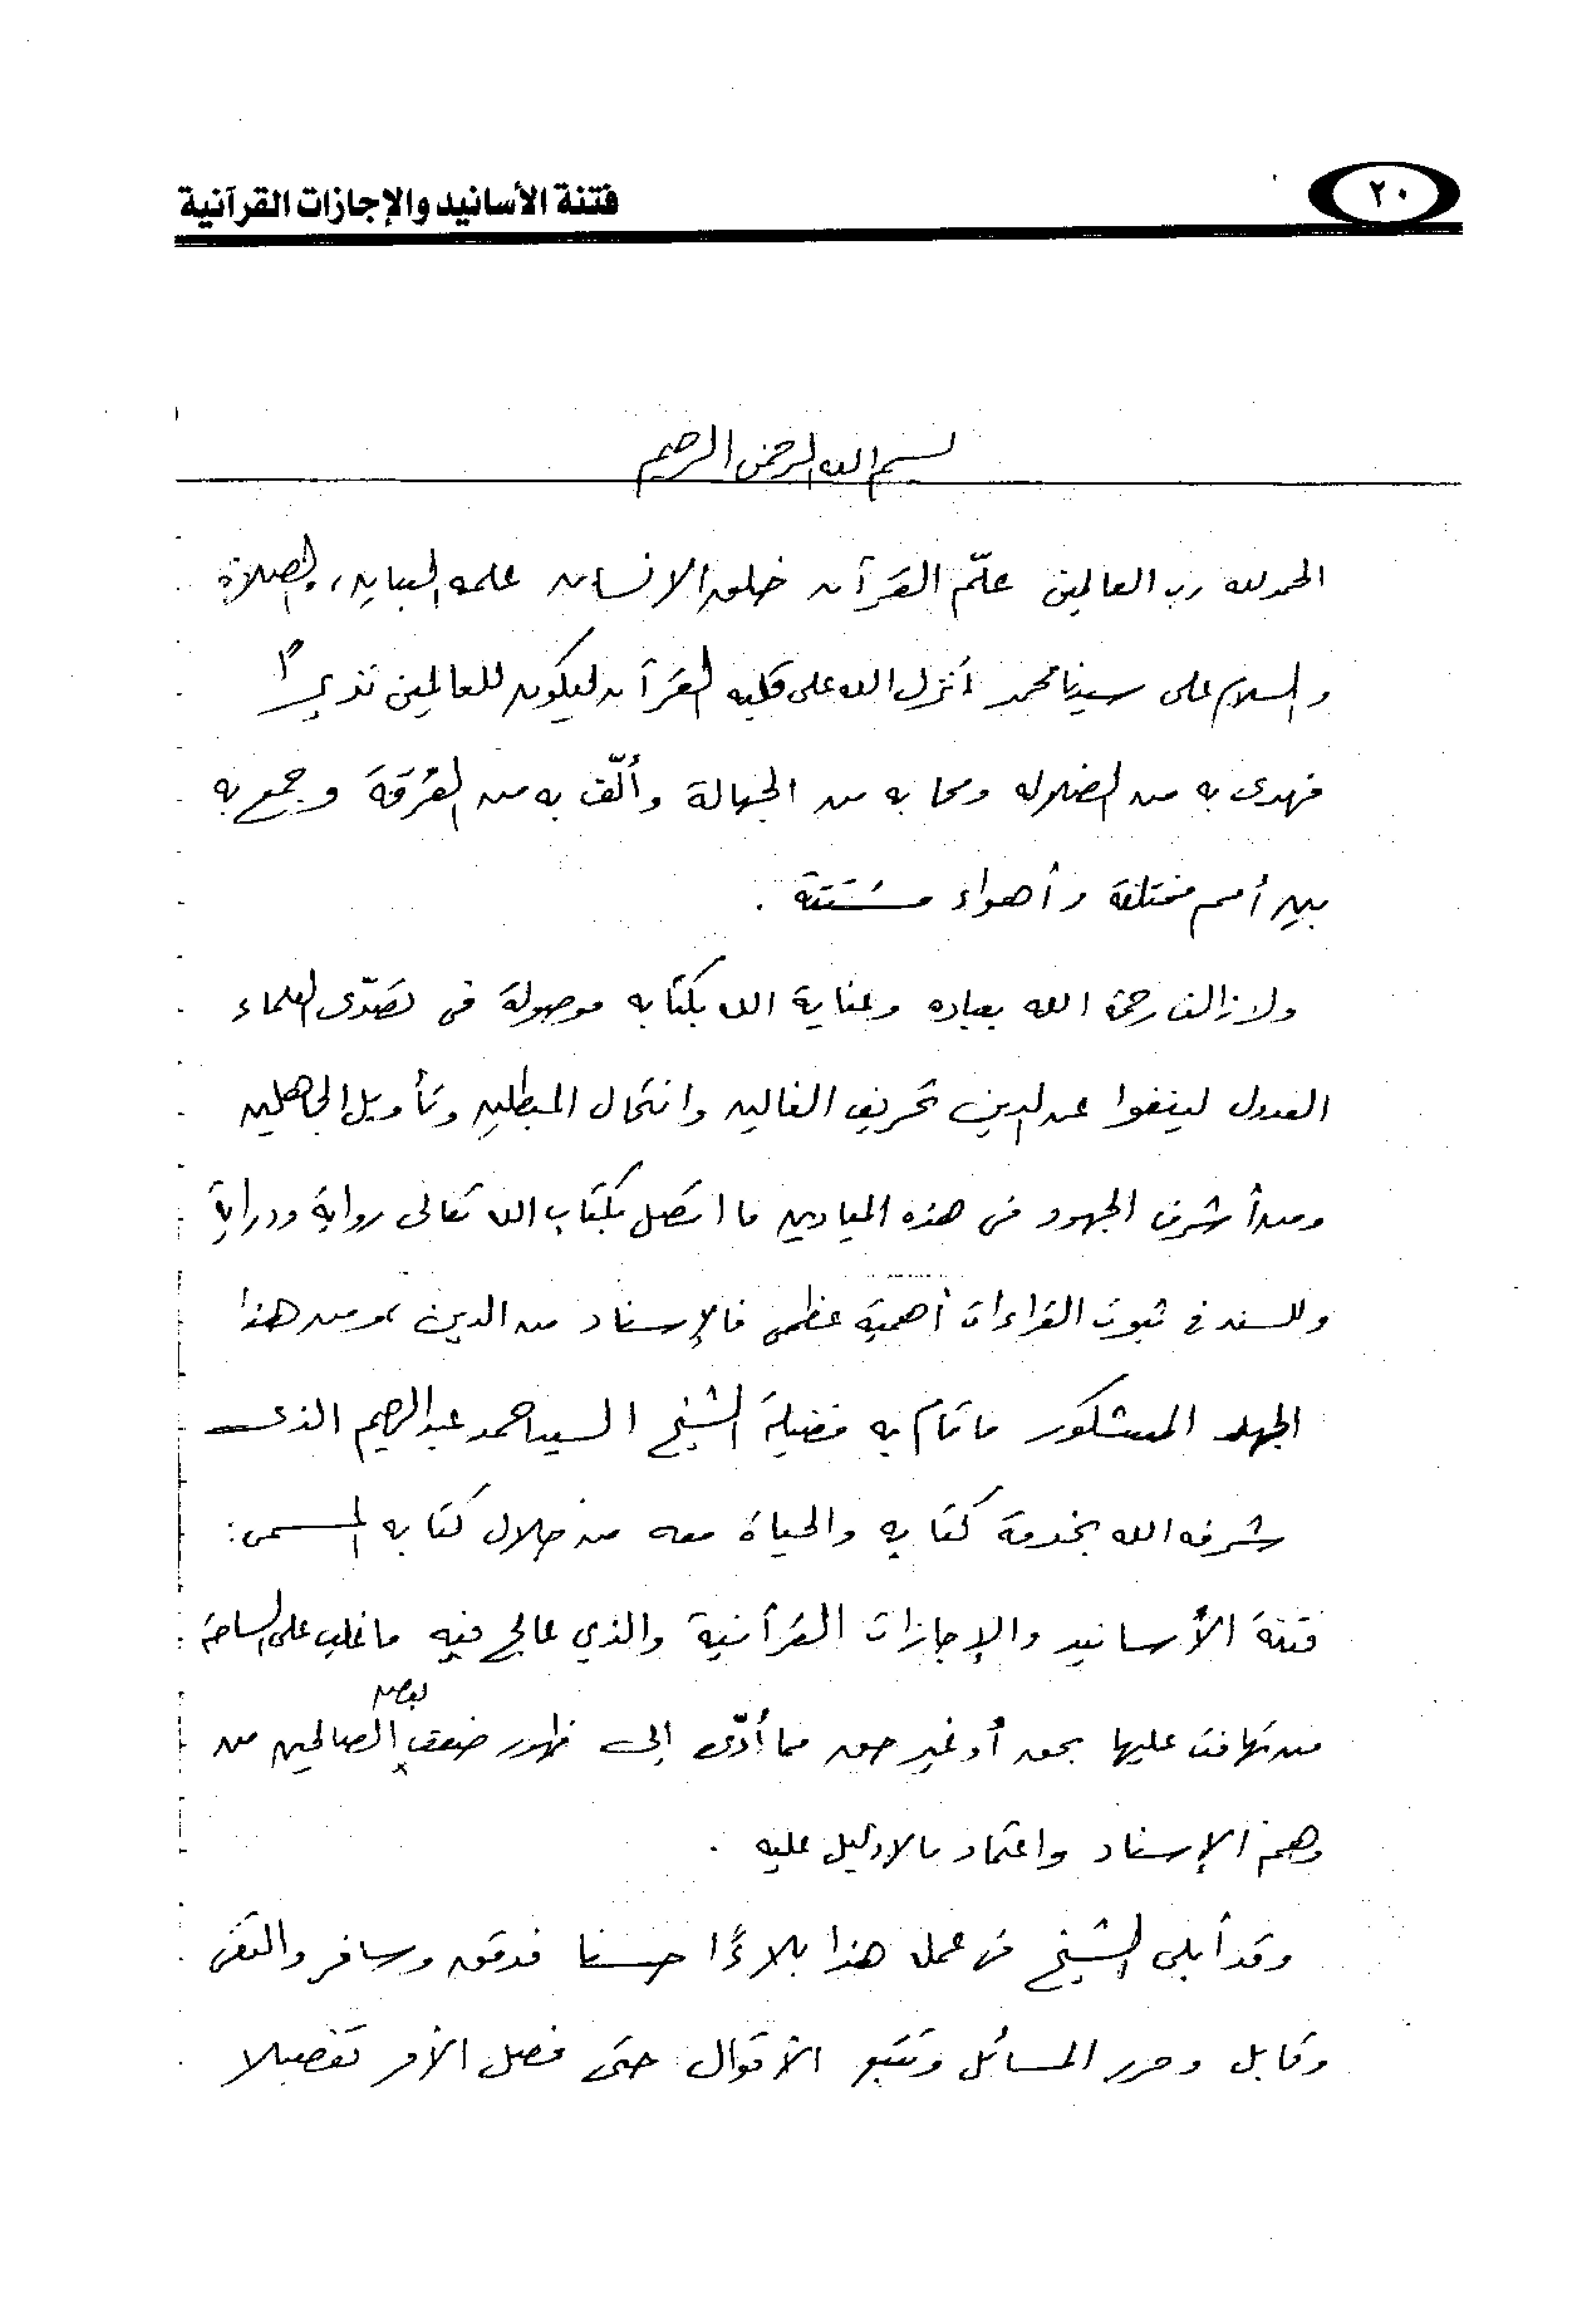 ٢٠
فتنة الأسانيد والإجازات القرآنية
بسم الله الرحمن الرحيم
الحمد لله رب العالمين علّم القرآن خلق الإنسان علمه البيان، والصلاة
والسلام على سيدنا محمد أنزل الله على قلبه القرآن ليكون للعالمين نذيرًا
فهدى به من الضلاله ومحا به من الجهالة وألّف به من الفُرقة وجمع به
بين أمم مختلفة وأهواء مشتتة .
ولا زالت رحمة الله بعباده وعناية الله بكتابه موصولة في تصدّى العلماء
العدول لينفوا عن الدين تحريف الغالين وانتحال المبطلين وتأويل الجاهلين
ومن أشرف الجهود في هذه الميادين ما اتصل بكتاب الله تعالى رواية ودراية
وللسند في ثبوت القراءات أهمية عظمى فالإسناد من الدين، ومن هذا
الجهد المشكور ما قام به فضيلة الشيخ السيد أحمد عبد الرحيم الذى
شرفه الله بخدمة كتابه والحياة معه من خلال كتابه المسمى:
فتنة الأسانيد والإجازات القرآنية والذي عالج فيه ما غلب على الساحة
من تهافت عليها بحق أو غير حق مما أدّى إلى ظهور ضعف بعض الصالحين من
وهم الإسناد واعتماد ما لا دليل عليه .
وقد أبلى الشيخ في عمله هذا بلاءً حسنا فدقق وسافر والتقى
وقابل وحرر المسائل وتتبع الأقوال حتى فصل الأمر تفصيلا